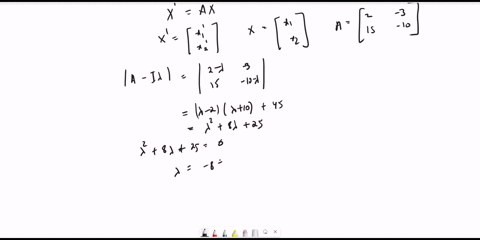 X' = AX
X' = [x₁' x₂'] X = [x₁ x₂] A = [2 -3 15 -10]
|A - Iλ| = |2-λ 3 15 -10-λ|
= (λ-2)(λ+10) + 45
= λ² + 8λ + 25
λ² + 8λ + 25 = 0
λ = -8